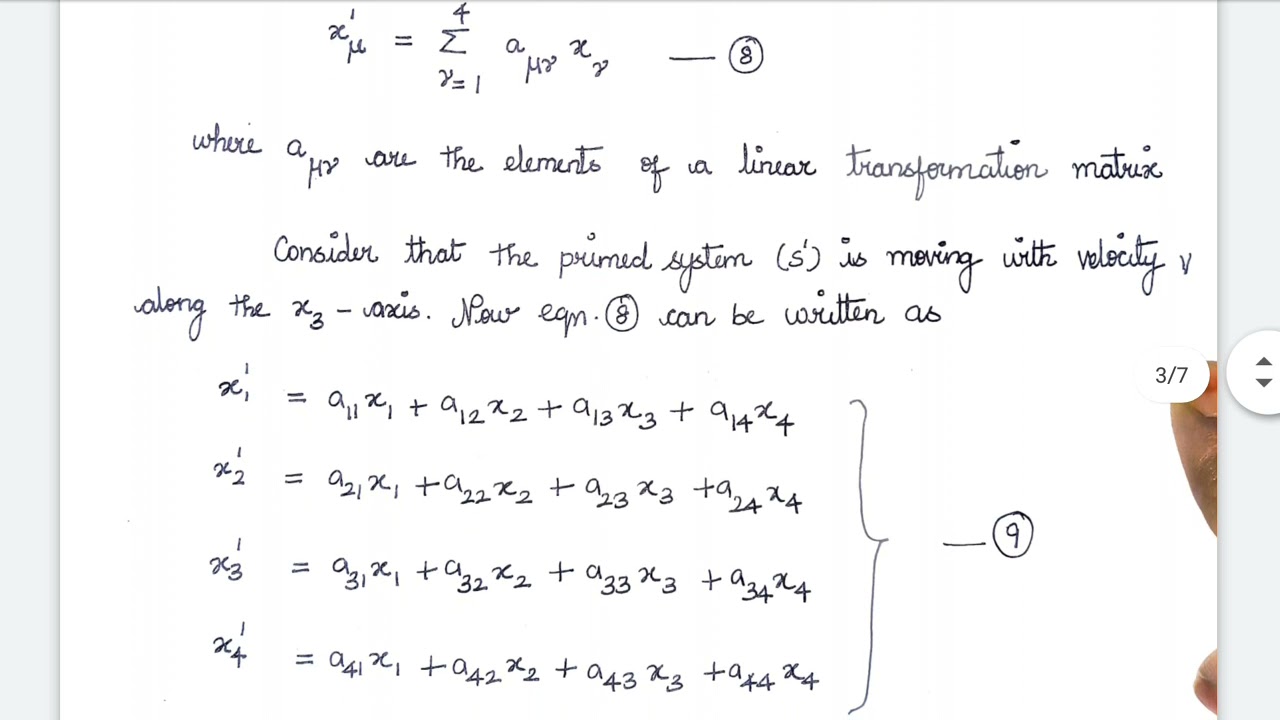 x'μ = Σ⁴ᵥ₌₁ aμν xν — ⑧
where aμν are the elements of a linear transformation matrix
Consider that the primed system (s') is moving with velocity v
along the x₃ - axis. Now eqn. ⑧ can be written as
x₁' = a₁₁x₁ + a₁₂x₂ + a₁₃x₃ + a₁₄x₄
x₂' = a₂₁x₁ + a₂₂x₂ + a₂₃x₃ + a₂₄x₄
3/7
— ⑨
x₃' = a₃₁x₁ + a₃₂x₂ + a₃₃x₃ + a₃₄x₄
x₄' = a₄₁x₁ + a₄₂x₂ + a₄₃x₃ + a₄₄x₄